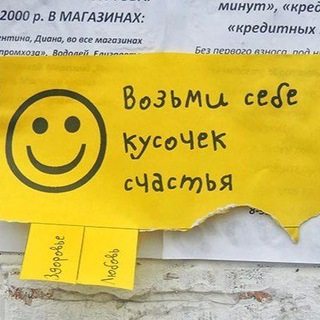 2000 р. В МАГАЗИНАХ:
Диана, во все магазины
минут», «кред
«кредитных
Без первого взноса, под
Возьми себе
кусочек
счастья
Здоровье
Любовь